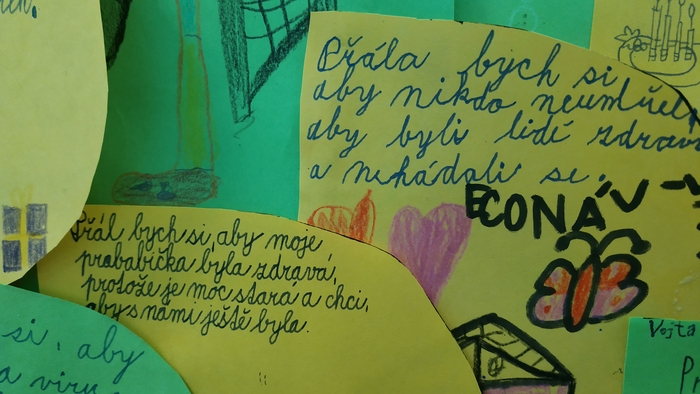 Přála bych si,
aby nikdo neumřel,
aby byli lidí zdraví
a nehádali se.
ECONÁV
Přál bych si, aby moje
prababička byla zdravá,
protože je moc stará a chci,
aby s námi ještě byla.
si, aby
a viru
Vojta